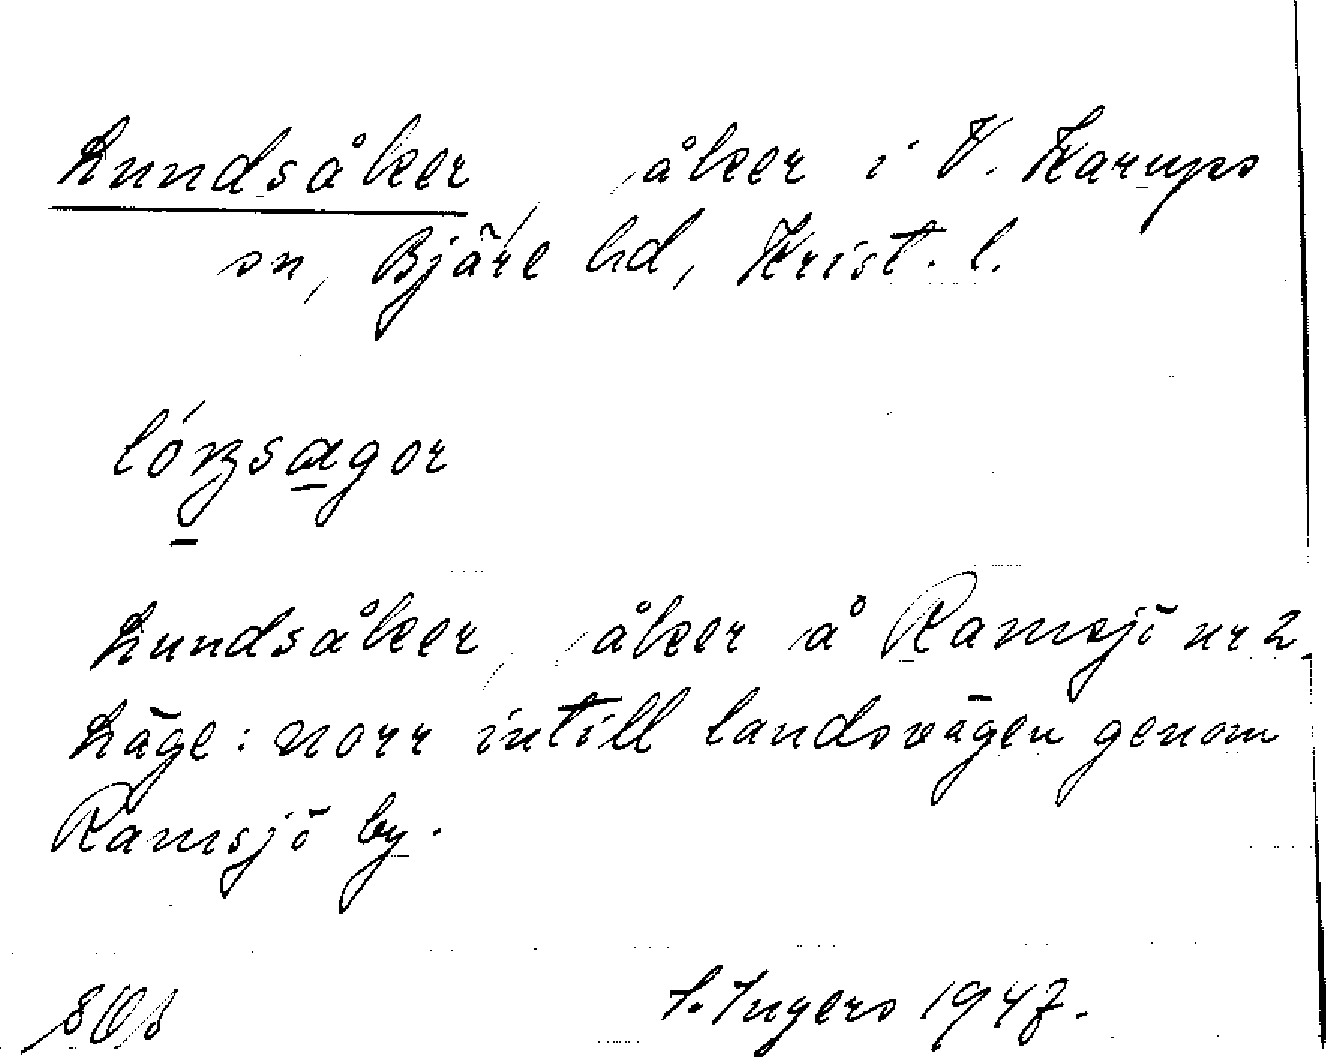 Lundsåker, åker i V. Karups
sn, Bjäre hd, Krist. l.
Lundsåker, åker å Ramsjö nr 2.
Läge: norr intill landsvägen genom
Ramsjö by.
I. Ingers 1947.